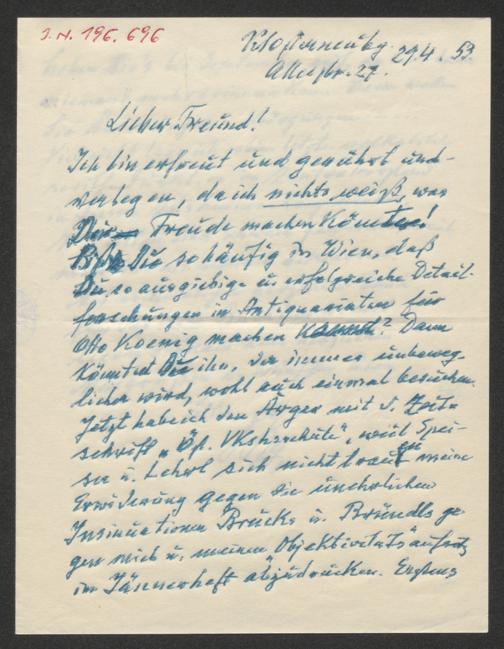 J.N. 196.696
Klosterneubg. 29.4.53
Allestr. 27.
Lieber Freund!
Ich bin erfreut und gerührt und
verlegen, da ich nichts weiß, was
Dir Freude machen könnte!
Bist Du so häufig in Wien, daß
Du so ausgiebige u. erfolgreiche Detail-
forschungen in Antiquariaten für
Otto Koenig machen kannst? Dann
könntest Du ihn, der immer unbeweg-
licher wird, wohl auch einmal besuchen.
Jetzt habe ich den Ärger mit d. Zeit-
schrift „Öst. Vkshschule", weil Spei-
ser u. Lehrl sich nicht trauen meine
Erwiderung gegen die unehrlichen
Insinuationen Brucks u. Bründls ge-
gen mich u. meinen „Objektivitäts"aufsatz
im Jännerheft abzudrucken. Erstens